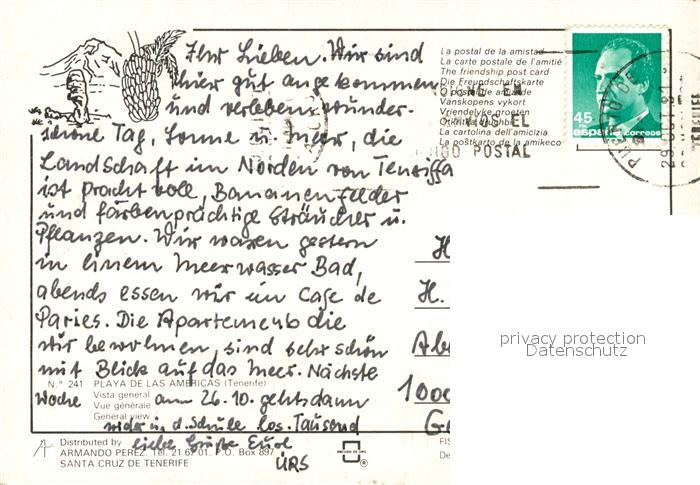 Ihr Lieben. Wir sind
hier gut angekommen
und verleben wunder-
schöne Tag, Sonne u. Meer, die
Landschaft im Norden von Teneriffa
ist prachtvoll, Bananenfelder
und farbenprächtige Sträucher u.
Pflanzen. Wir waren gestern
in einem Meerwasser Bad,
abends essen wir im Cafe de
Paries. Die Apartements die
wir bewohnen, sind sehr schön
mit Blick auf das Meer. Nächste
Woche am 26.10. gehts dann
wider in d. Schule los. Tausend
liebe Grüße Eud
URS
La postal de la amistad
La carte postale de l'amitié
The friendship post card
Die Freundschaftskarte
O postal de amizade
Vanskopens vykort
Vriendelyke groeten
La cartolina dell'amicizia
La postkarta de la amikeco
EN
EL
POSTAL
45
españa correos
H.
1000
privacy protection
Datenschutz
N.º 241 PLAYA DE LAS AMERICAS (Tenerife)
Vista general
Vue générale
General view
Distributed by
ARMANDO PEREZ. Tel. 21 67 01. P.O. Box 897
SANTA CRUZ DE TENERIFE